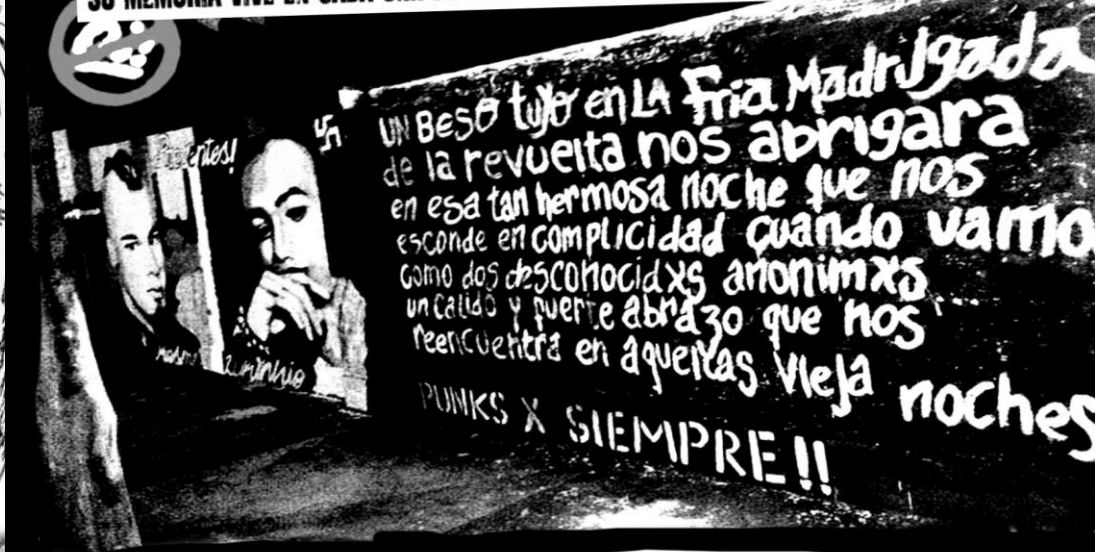 SU MEMORIA VIVE EN CADA
UN BesO tuyo en LA Fria Madrugada
de la revuelta nos abrigara
en esa tan hermosa noche que nos
esconde en complicidad cuando vamo
como dos desconocidxs anonimxs
un calido y fuerte abrazo que nos
reencuentra en aquellas vieja noches
PUNKS X SIEMPRE!!